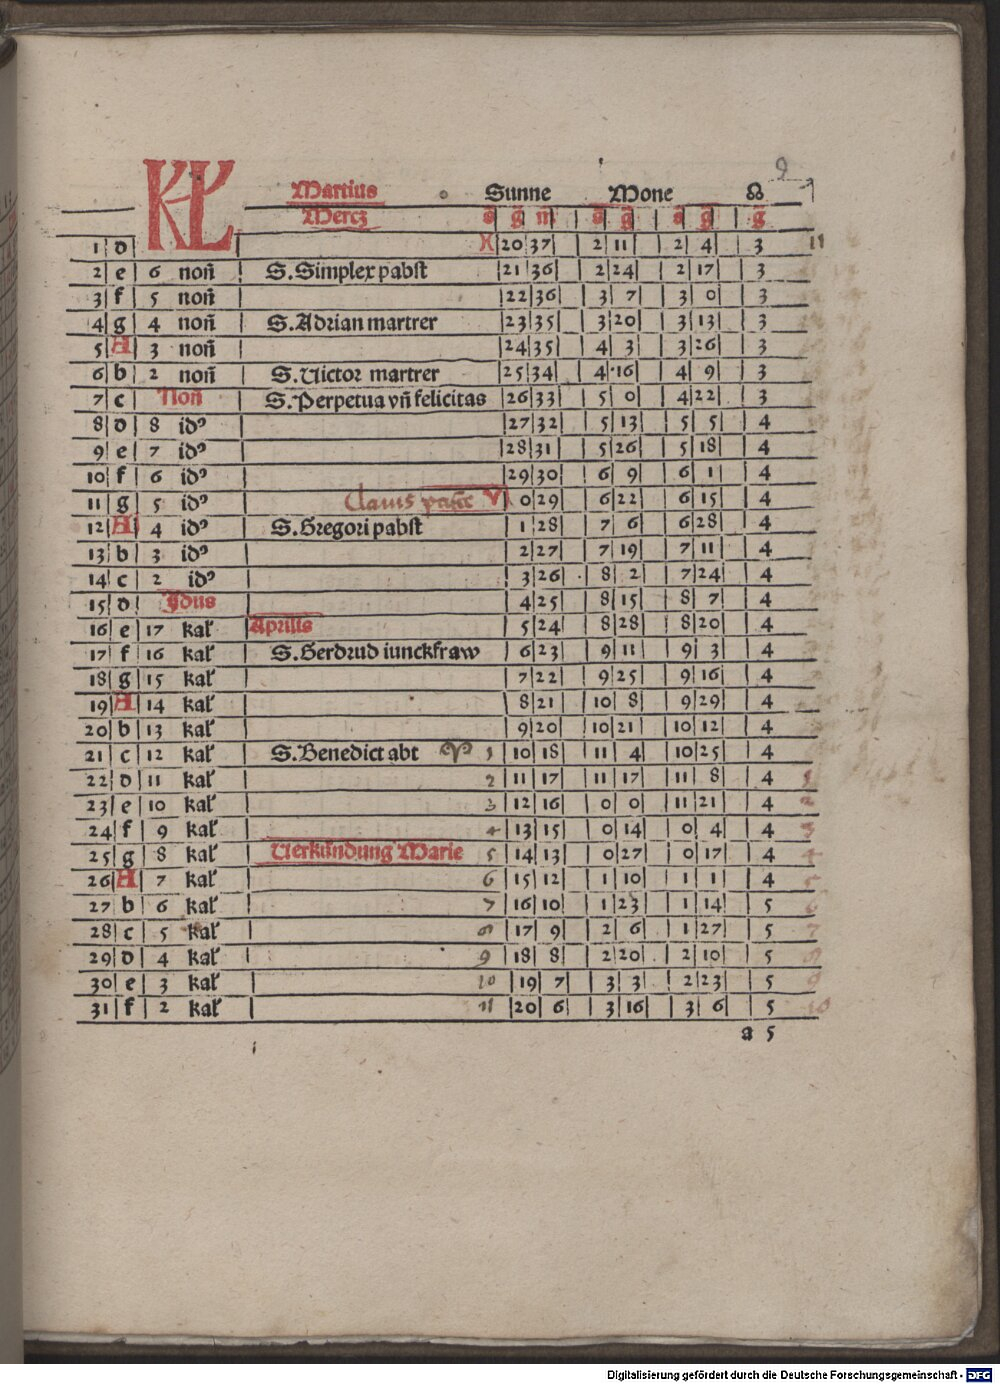 9
KL Martius Sunne Mone ☊
Mercz s g m s g s g g
1 d ♓ 20 37 2 11 2 4 3 11
2 e 6 non̄ S. Simplex pabst 21 36 2 24 2 17 3
3 f 5 non̄ 22 36 3 7 3 0 3
4 g 4 non̄ S. Adrian martrer 23 35 3 20 3 13 3
5 A 3 non̄ 24 35 4 3 3 26 3
6 b 2 non̄ S. Victor martrer 25 34 4 16 4 9 3
7 c Non̄ S. Perpetua vn̄ felicitas 26 33 5 0 4 22 3
8 d 8 idꝰ 27 32 5 13 5 5 4
9 e 7 idꝰ 28 31 5 26 5 18 4
10 f 6 idꝰ 29 30 6 9 6 1 4
11 g 5 idꝰ Clauis ♈ 0 29 6 22 6 15 4
12 A 4 idꝰ S. Gregori pabst 1 28 7 6 6 28 4
13 b 3 idꝰ 2 27 7 19 7 11 4
14 c 2 idꝰ 3 26 8 2 7 24 4
15 d Jdus 4 25 8 15 8 7 4
16 e 17 kal' Aprilis 5 24 8 28 8 20 4
17 f 16 kal' S. Gerdrud iunckfraw 6 23 9 11 9 3 4
18 g 15 kal' 7 22 9 25 9 16 4
19 A 14 kal' 8 21 10 8 9 29 4
20 b 13 kal' 9 20 10 21 10 12 4
21 c 12 kal' S. Benedict abt ♈ 1 10 18 11 4 10 25 4
22 d 11 kal' 2 11 17 11 17 11 8 4 1
23 e 10 kal' 3 12 16 0 0 11 21 4 2
24 f 9 kal' 4 13 15 0 14 0 4 4 3
25 g 8 kal' Verkündung Marie 5 14 13 0 27 0 17 4 4
26 A 7 kal' 6 15 12 1 10 1 1 4 5
27 b 6 kal' 7 16 10 1 23 1 14 5 6
28 c 5 kal' 8 17 9 2 6 1 27 5 7
29 d 4 kal' 9 18 8 2 20 2 10 5 8
30 e 3 kal' 10 19 7 3 3 2 23 5 9
31 f 2 kal' 11 20 6 3 16 3 6 5 10
a 5
Digitalisierung gefördert durch die Deutsche Forschungsgemeinschaft - DFG